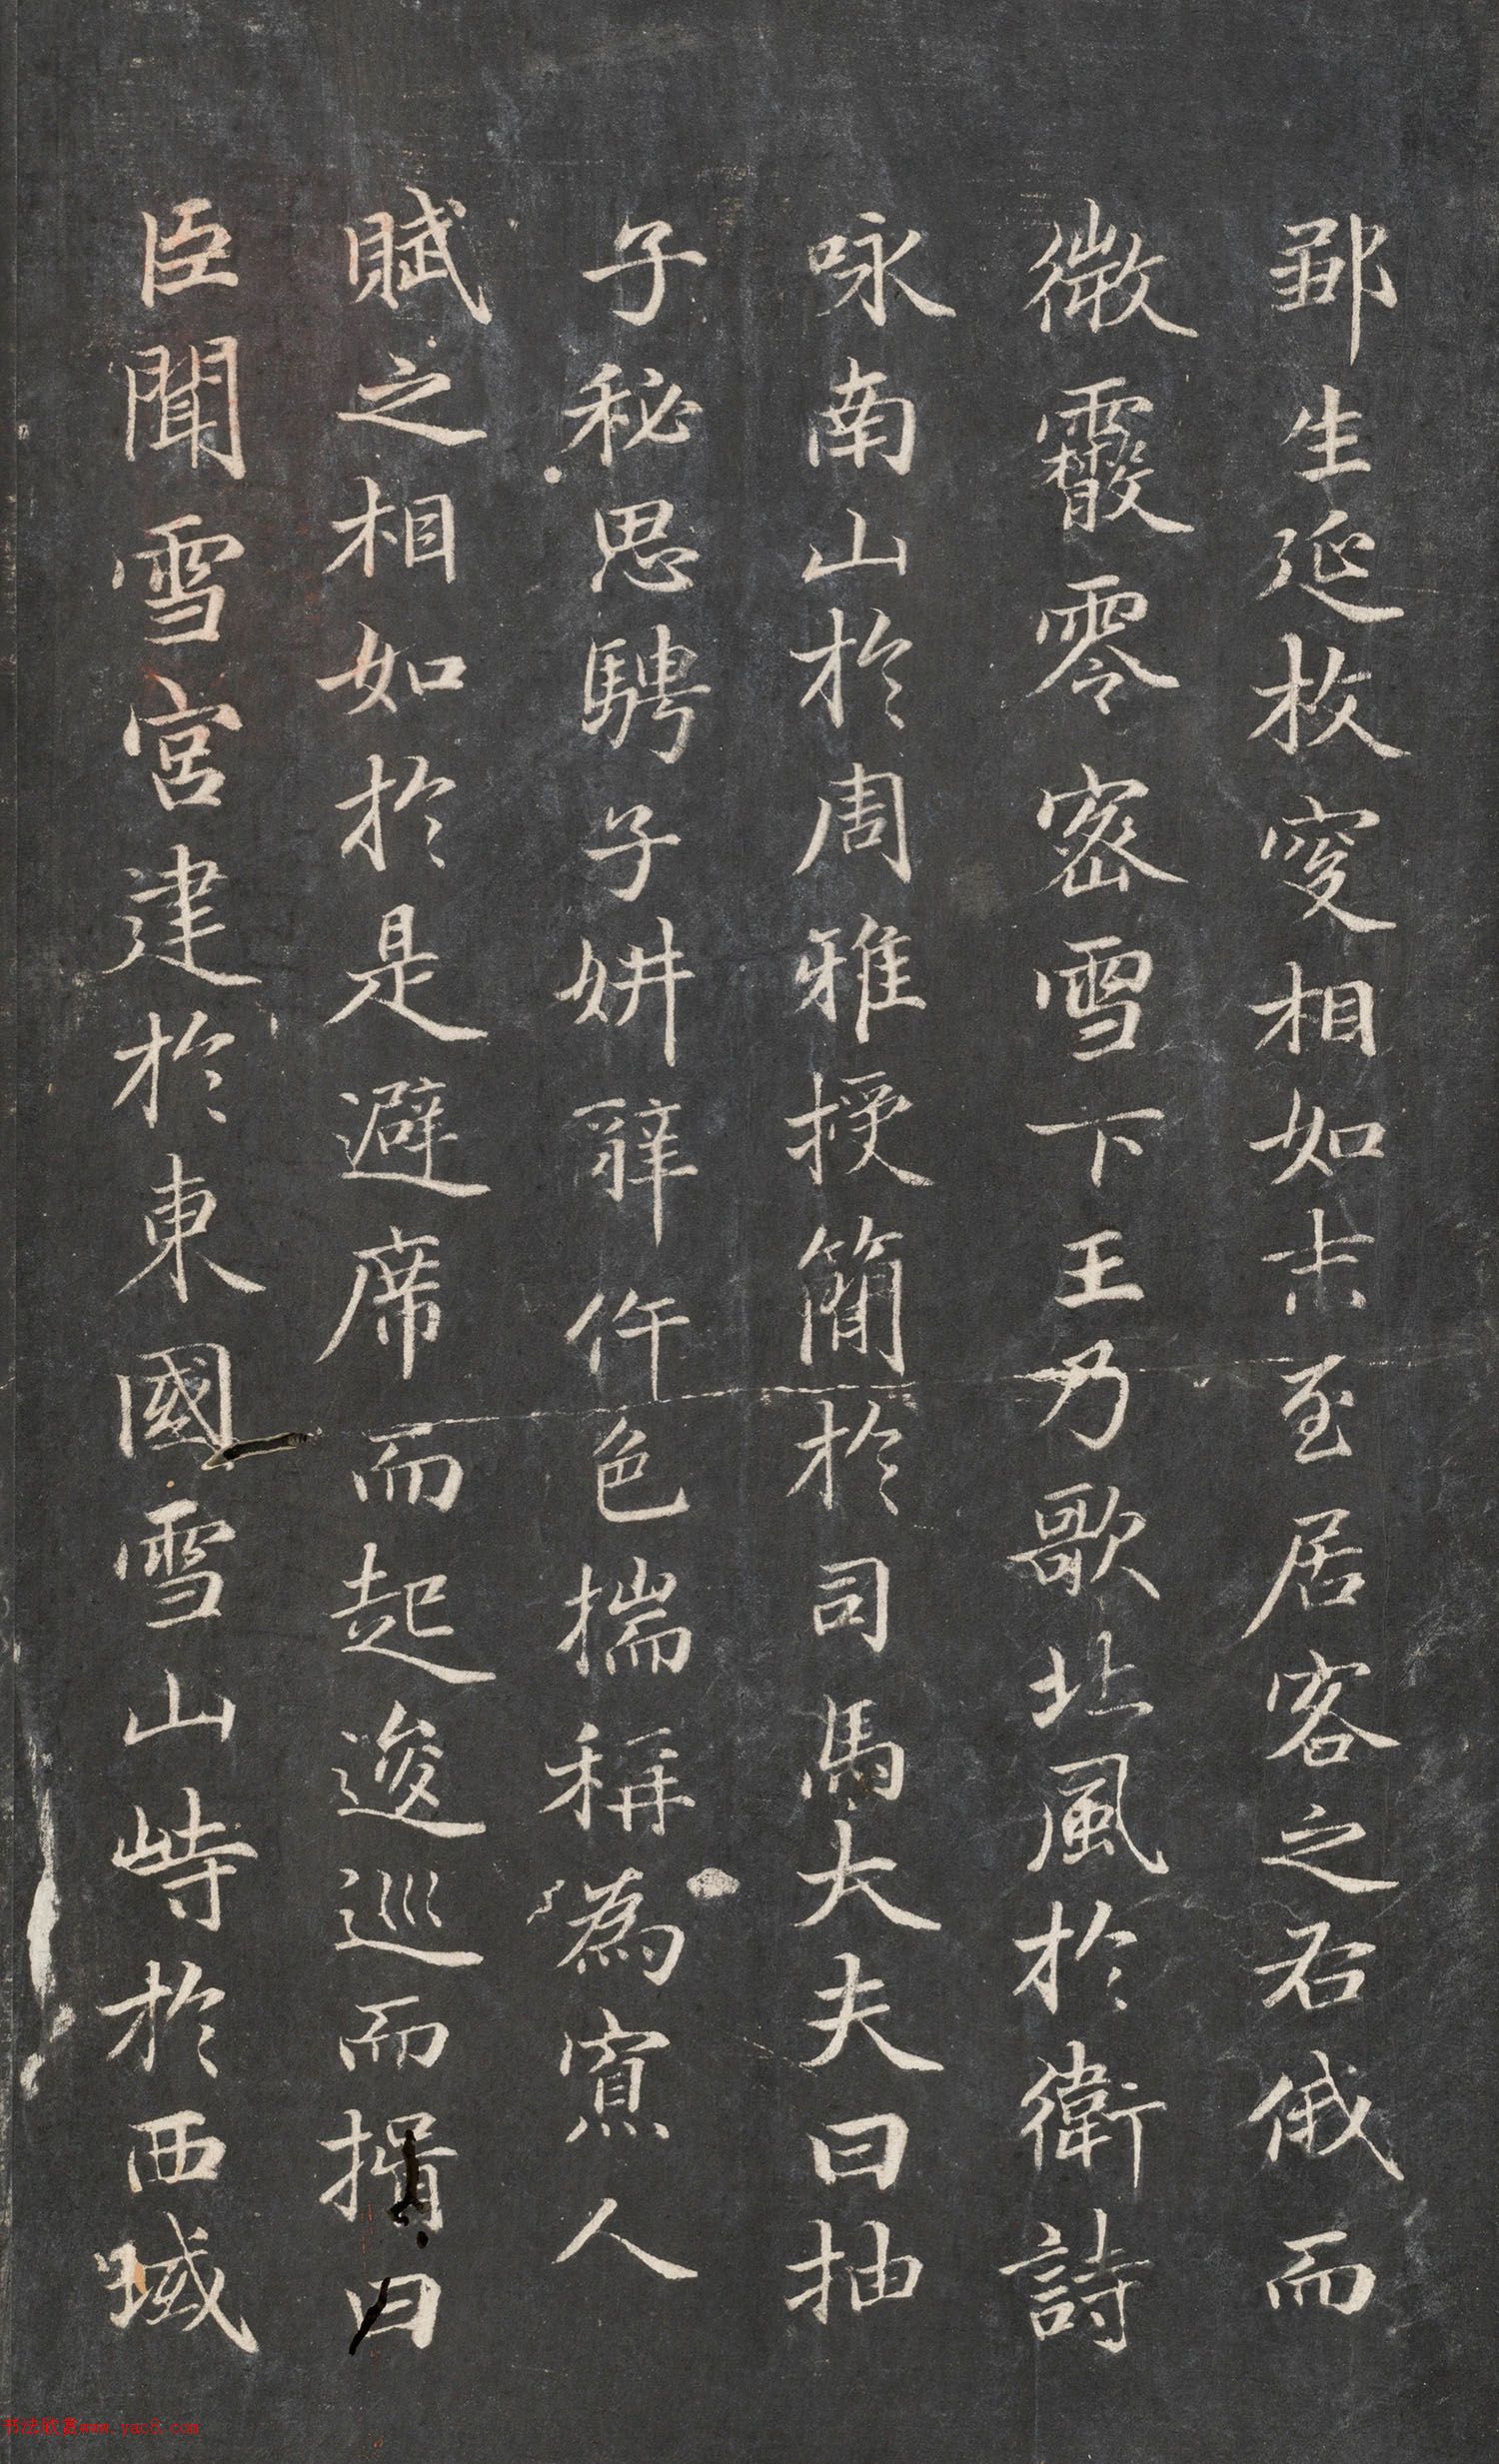 鄒生延枚叟相如末至居客之右俄而
微霰零密雪下王乃歌北風於衛詩
咏南山於周雅授簡於司馬大夫曰抽
子秘思騁子妍辭侔色揣稱為寡人
賦之相如於是避席而起逡巡而揖曰
臣聞雪宮建於東國雪山峙於西域
书法欣赏www.yac8.com